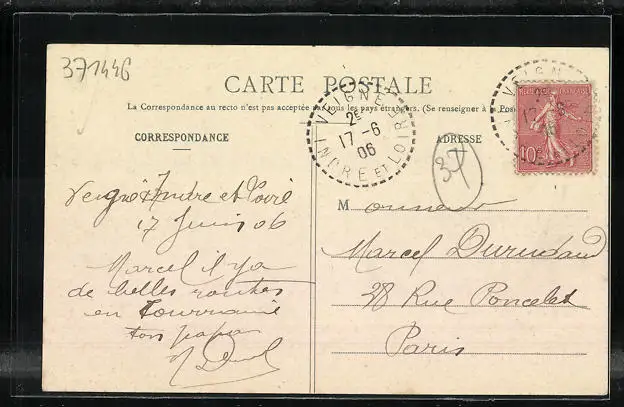 371446
CARTE POSTALE
La Correspondance au recto n'est pas acceptée par tous les pays étrangers. (Se renseigner à la Poste
CORRESPONDANCE
ADRESSE
VEIGNÉ
2E
17-6
06
INDRE ET LOIRE
VEIGNÉ
17-6
10c
37
Veigné Indre et Loire
17 Juin 06
Marcel il y a
de belles routes
en Tourraine
ton papa
Monsieur
Marcel
28 Rue Poncelet
Paris